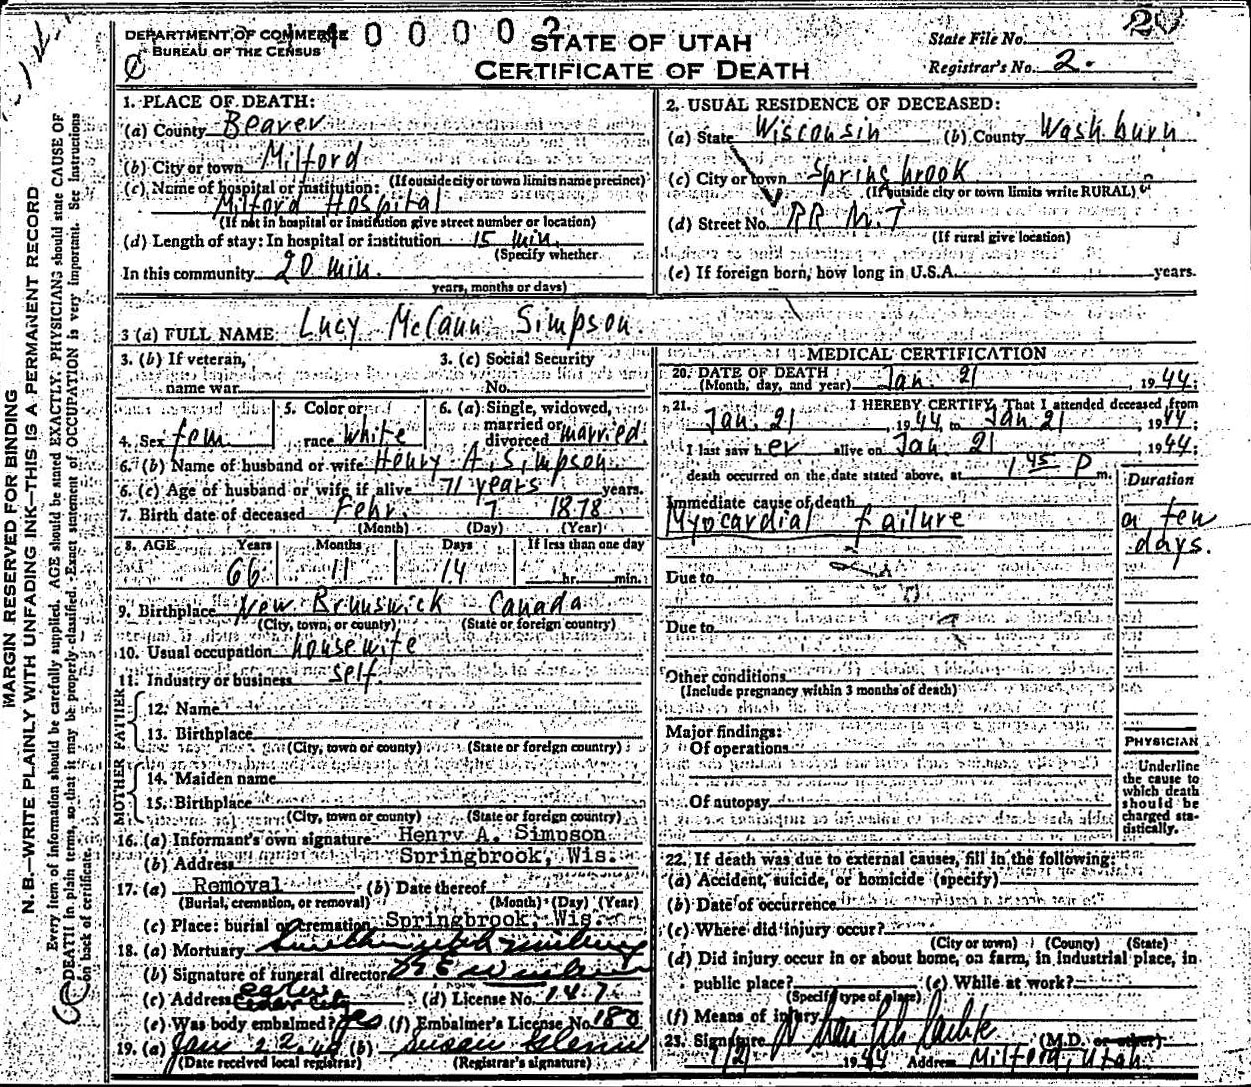 MARGIN RESERVED FOR BINDING
N. B.—WRITE PLAINLY WITH UNFADING INK—THIS IS A PERMANENT RECORD
Every item of information should be carefully supplied. AGE should be stated EXACTLY. PHYSICIANS should state CAUSE OF
DEATH in plain terms, so that it may be properly classified. Exact statement of OCCUPATION is very important. See Instructions
on back of certificate.
DEPARTMENT OF COMMERCE
BUREAU OF THE CENSUS
0 0 0 0 2
STATE OF UTAH
CERTIFICATE OF DEATH
State File No. 20
Registrar's No. 2.
1. PLACE OF DEATH:
(a) County Beaver
(b) City or town Milford
(If outside city or town limits name precinct)
(c) Name of hospital or institution:
Milford Hospital
(If not in hospital or institution give street number or location)
(d) Length of stay: In hospital or institution 15 min.
(Specify whether
In this community 20 min.
years, months or days)
2. USUAL RESIDENCE OF DECEASED:
(a) State Wisconsin (b) County Washburn
(c) City or town Springbrook
(If outside city or town limits write RURAL)
(d) Street No. RR N.
(If rural give location)
(e) If foreign born, how long in U.S.A. years.
3 (a) FULL NAME Lucy McCann Simpson
3. (b) If veteran,
name war
3. (c) Social Security
No.
4. Sex fem.
5. Color or
race white
6. (a) Single, widowed,
married or
divorced married
6. (b) Name of husband or wife Henry A. Simpson
6. (c) Age of husband or wife if alive 71 years years.
7. Birth date of deceased Febr. 7 1878
(Month) (Day) (Year)
8. AGE Years Months Days If less than one day
66 11 14 hr. min.
9. Birthplace New Brunswick Canada
(City, town, or county) (State or foreign country)
10. Usual occupation housewife
11. Industry or business self
FATHER
12. Name
13. Birthplace
(City, town or county) (State or foreign country)
MOTHER
14. Maiden name
15. Birthplace
(City, town or county) (State or foreign country)
16. (a) Informant's own signature Henry A. Simpson
(b) Address Springbrook, Wis.
17. (a) Removal (b) Date thereof
(Burial, cremation, or removal) (Month) (Day) (Year)
(c) Place: burial or cremation Springbrook, Wis.
18. (a) Mortuary
(b) Signature of funeral director
(c) Address Cedar City (d) License No. 147
(e) Was body embalmed? yes (f) Embalmer's License No. 180
19. (a) Jan 22, 44 (b) Susan Glenn
(Date received local registrar) (Registrar's signature)
MEDICAL CERTIFICATION
20. DATE OF DEATH
(Month, day, and year) Jan. 21, 1944;
21. I HEREBY CERTIFY, That I attended deceased from
Jan. 21, 1944 to Jan. 21, 1944;
I last saw her alive on Jan. 21 1944;
death occurred on the date stated above, at 1 45 P m.
Duration
Immediate cause of death
Myocardial failure
a few
days.
Due to
Due to
Other conditions
(Include pregnancy within 3 months of death)
Major findings:
Of operations
Of autopsy
PHYSICIAN
Underline
the cause to
which death
should be
charged sta-
tistically.
22. If death was due to external causes, fill in the following:
(a) Accident, suicide, or homicide (specify)
(b) Date of occurrence
(c) Where did injury occur?
(City or town) (County) (State)
(d) Did injury occur in or about home, on farm, in industrial place, in
public place? (e) While at work?
(Specify type of place)
(f) Means of injury
23. Signature (M.D. or other)
1/21 1944 Address Milford, Utah